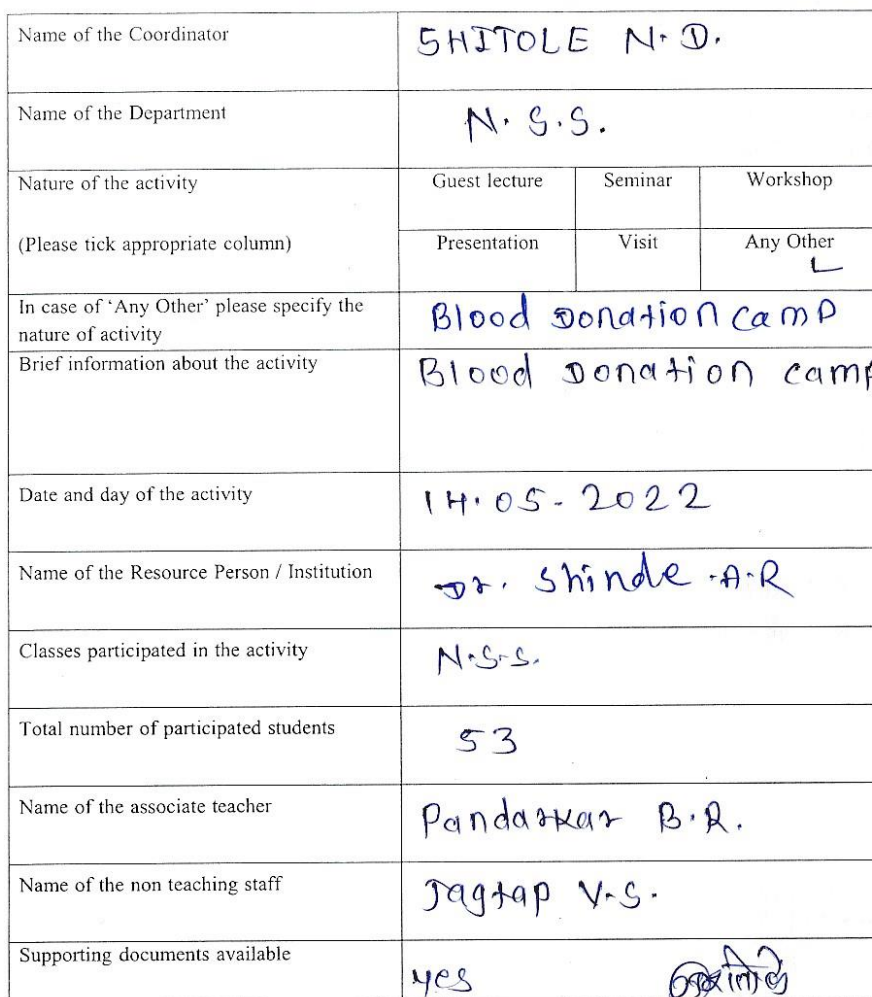 Name of the Coordinator SHITOLE N. D.
Name of the Department N. S. S.
Nature of the activity Guest lecture Seminar Workshop
(Please tick appropriate column) Presentation Visit Any Other
In case of 'Any Other' please specify the Blood Donation camp
nature of activity
Brief information about the activity Blood Donation camp
Date and day of the activity 14.05-2022
Name of the Resource Person / Institution Dr. Shinde .A.R
Classes participated in the activity N.S.S.
Total number of participated students 53
Name of the associate teacher Pandarkar B.R.
Name of the non teaching staff Jagtap V.S.
Supporting documents available yes